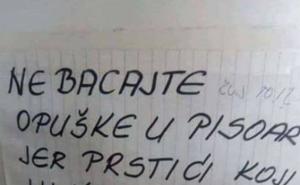 NE BACAJTE
OPUŠKE U PISOAR
JER PRSTIĆI KOJI